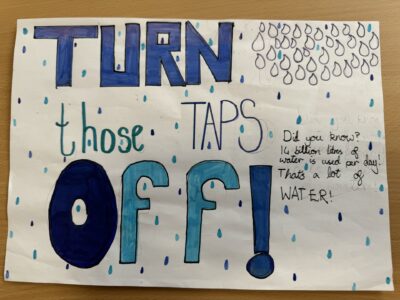 TURN
those TAPS
OFF!
Did you know?
14 billion litres of
water is used per day!
Thats a lot of
WATER!